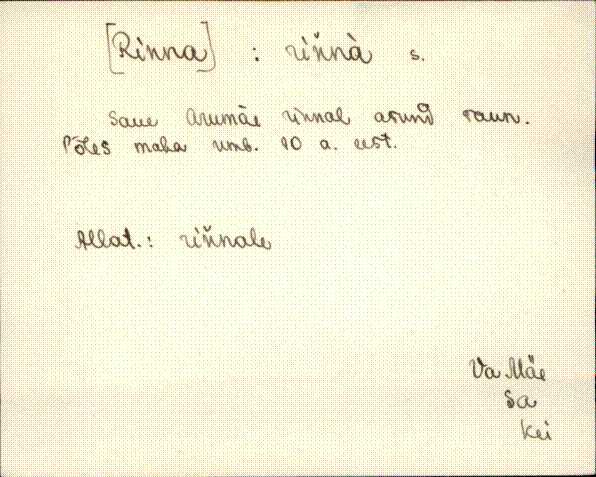 [Rinna] : riňnà s.
Saue Arumäe rinnal asund saun.
Põles maha umb. 10 a. eest.
Allat.: riňnale
Va Mäe
Sa
Kei